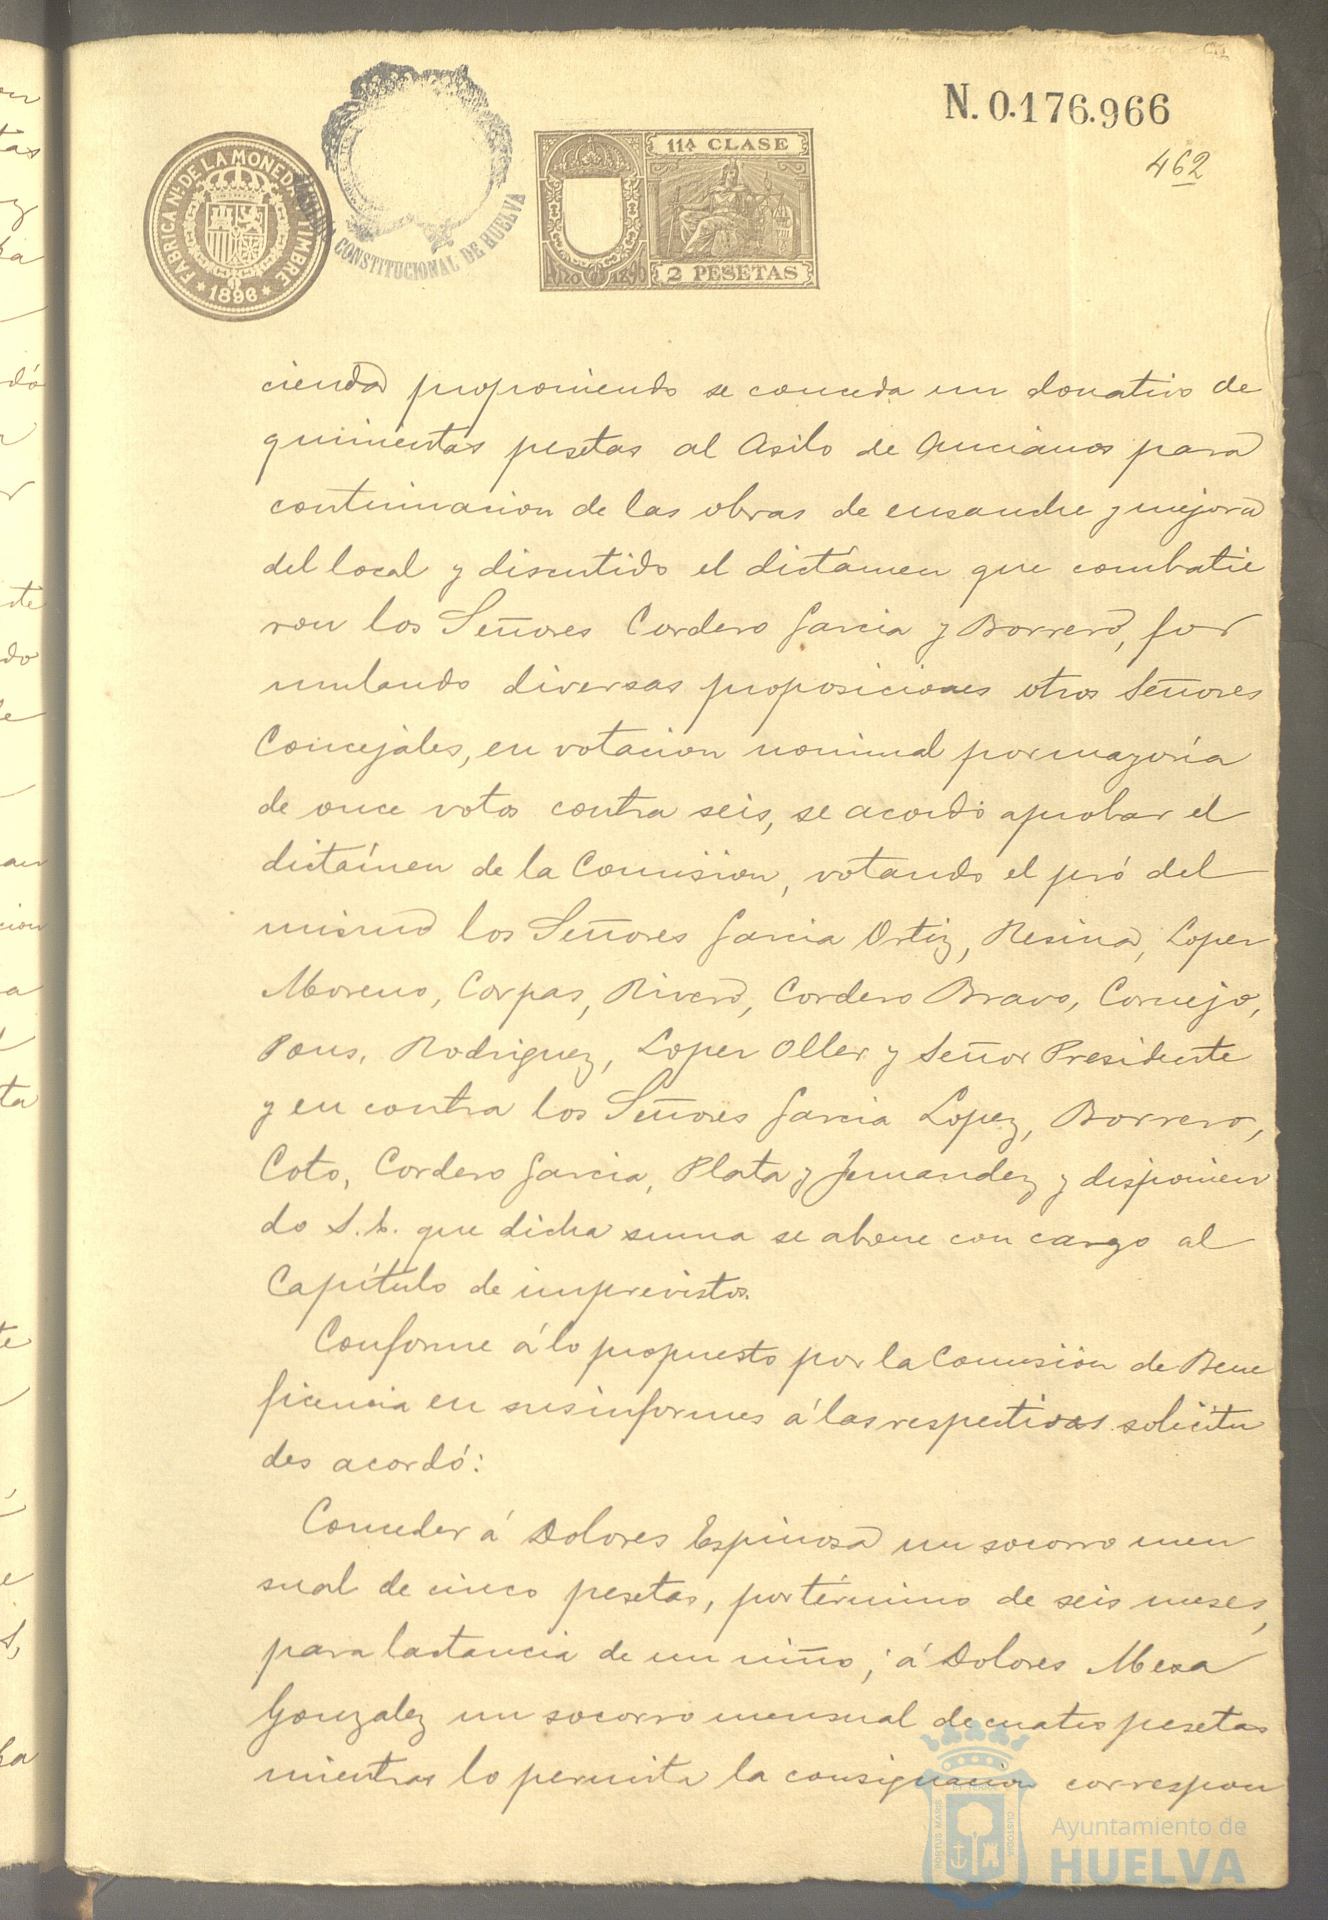 N. 0.176.966
462
FABRICA NL. DE LA MONEDA Y TIMBRE
* 1896 *
CONSTITUCIONAL DE HUELVA
11ª CLASE
2 PESETAS
cienda proponiendo se conceda un donativo de
quinientas pesetas al Asilo de Ancianos para
continuacion de las obras de ensanche y mejora
del local y discutido el dictámen que combatie
ron los Señores Cordero Garcia y Borrero, for
mulando diversas proposiciones otros Señores
Concejales, en votacion nominal por mayoría
de once votos contra seis, se acordó aprobar el
dictámen de la Comision, votando el pró del
mismo los Señores Garcia Ortiz, Resina, Lopez
Moreno, Corpas, Rivero, Cordero Bravo, Cornejo,
Pons, Rodriguez, Lopez Oller y Señor Presidente
y en contra los Señores Garcia Lopez, Borrero,
Coto, Cordero Garcia, Plata y Fernandez y disponien
do S.E. que dicha suma se abone con cargo al
Capítulo de imprevistos.
Conforme á lo propuesto por la Comision de Bene
ficencia en sus informes á las respectivas solicitu
des acordó:
Conceder á Dolores Espinosa un socorro men
sual de cinco pesetas, por término de seis meses,
para lactancia de un niño; á Dolores Mesa
Gonzalez un socorro mensual de cuatro pesetas
mientras lo permita la consignacion correspon
PORTUS MARIS
ET TERRAE
CUSTODIA
Ayuntamiento de
HUELVA